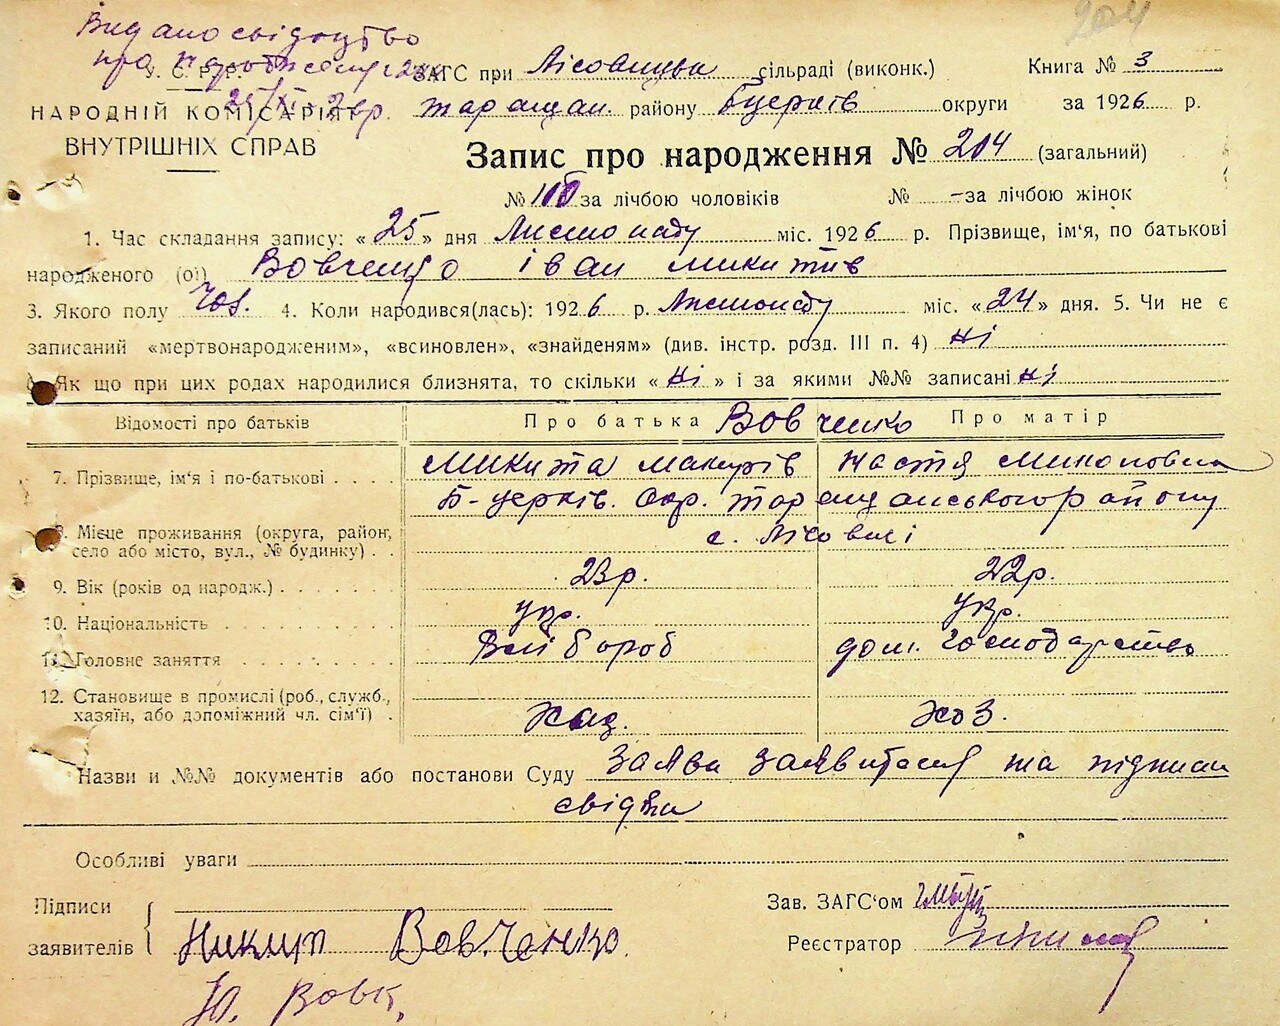 204
Видано свідоцтво
про народження
У. С. Р. Р. ЗАГС при Лісовицькій сільраді (виконк.) Книга № 3
25/XI - 26р.
НАРОДНІЙ КОМІСАРІЯТ Таращан. району Бцерків округи за 1926 р.
ВНУТРІШНІХ СПРАВ
Запис про народження № 204 (загальний)
№ за лічбою чоловіків № - за лічбою жінок
1. Час складання запису: « 25 » дня Листопаду міс. 1926 р. Прізвище, ім'я, по батькові
народженого (ої) Вовченко Іван Микитів
3. Якого полу Чол. 4. Коли народився(лась): 1926 р. Листопаду міс. « 24 » дня. 5. Чи не є
записаний «мертвонародженим», «всиновлен», «знайденям» (див. інстр. розд. III п. 4) Ні
Як що при цих родах народилися близнята, то скільки « Ні » і за якими №№ записані Ні
Відомості про батьків Про батька Вовченко Про матір
7. Прізвище, ім'я і по-батькові Микита Настя
Б-церків. Окр. Таращанського району
8. Місце проживання (округа, район, с. Лісовичі
село або місто, вул., № будинку)
9. Вік (років од народж.) 23р. 22р.
10. Національність Укр. Укр.
11. Головне заняття Хлібороб дом. Господарство
12. Становище в промислі (роб., служб.,
хазяїн, або допоміжний чл. сім'ї)
Назви и №№ документів або постанови Суду Заява заявителя та підписи
свідка
Особливі уваги
Підписи Зав. ЗАГС'ом
заявителів Никита Вовченко Реєстратор
Ю. Вовк